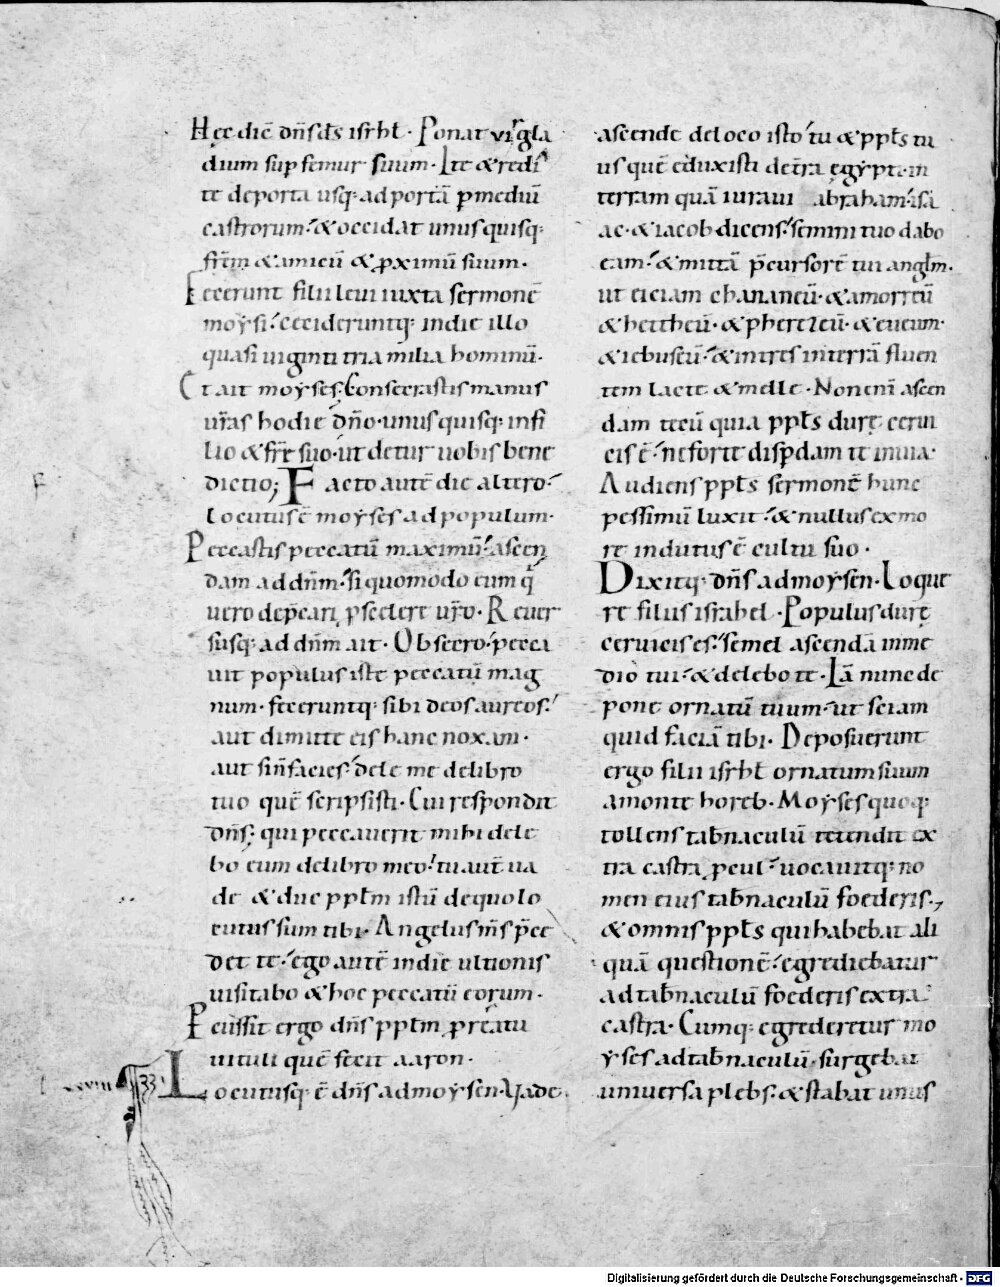 Hęc dic̄ dn̄s ds̄ isrhl̄ · Ponat vir gla
dium sup femur suum · Ite & redi
te deporta usq: ad portā p̱mediū
castrorum · & occidat unusquisq:
frēm & amicū & p̱ximū suum ·
Fecerunt filii leui iuxta sermonē
moẏsi · cecideruntq: indie illo
quasi uiginti tria milia hominū ·
Et ait moẏses · Consecrastis manus
ur̄as hodie dn̄o · unusquisq: infi
lio & frē suo · ut detur uobis bene
dictio; Facto autē die altero ·
locutus ē moẏses ad populum ·
Peccastis peccatū maximū · ascen
dam ad dn̄m · si quomodo eum q̄
uero dep̄cari p̱scelere ur̄o · Reuer
susq: ad dn̄m ait · Obsecro · pecca
uit populus iste peccatū mag
num · feceruntq: sibi deos aureos ·
aut dimitte eis hanc noxam ·
aut sin̄ facies · dele me delibro
tuo quē scripsisti · Cui respondit
dn̄s · qui peccauerit mihi dele
bo eum delibro meo · tu aut̄ ua
de & duc ppl̄m istū dequo lo
cutus sum tibi · Angelus m̄s p̄ce
det te · ego autē indie ultionis
uisitabo & hoc peccatū eorum ·
Pcussit ergo dn̄s ppl̄m p̱ reatu
uituli quē fecit aaron ·
xxxiii Locutusq: ē dn̄s ad moẏsen · Uade
ascende deloco isto tu & ppl̄s tu
us quē eduxisti detr̄a egẏpti · in
terram quā iuraui abraham · isa
ac · & iacob dicens · semini tuo dabo
eam · & mittā p̄cursorē tui angl̄m ·
ut eiciam chananeū · & amorreū
& hettheū · & pherezeū · & eueum ·
& iebuseū · & intres interrā fluen
tem lacte & melle · Non eni ascen
dam tecū quia ppl̄s durę cerui
cis ē · ne forte disp̱dam te inuia ·
Audiens ppl̄s sermonē hunc
pessimū luxit · & nullus ex mo
re indutus ē cultu suo ·
Dixitq: dn̄s ad moẏsen · Loque
re filiis israhel · Populus durę
ceruicis es · semel ascendā inme
dio tui · & delebo te · Iā nunc de
pone ornatū tuum · ut sciam
quid faciā tibi · Deposuerunt
ergo filii isrhl̄ ornatum suum
amonte horeb · Moẏses quoq:
tollens tab̄naculū tetendit ex
tra castra p̱cul · uocauitq: no
men eius tab̄naculū foederis ·,
& omnis ppl̄s qui habebat ali
quā questionē · egrediebatur
ad tab̄naculū foederis extra
castra · Cumq: egrederetur mo
ẏses ad tab̄naculū · surgebat
uniuersa plebs · & stabat unus
Digitalisierung gefördert durch die Deutsche Forschungsgemeinschaft - DFG